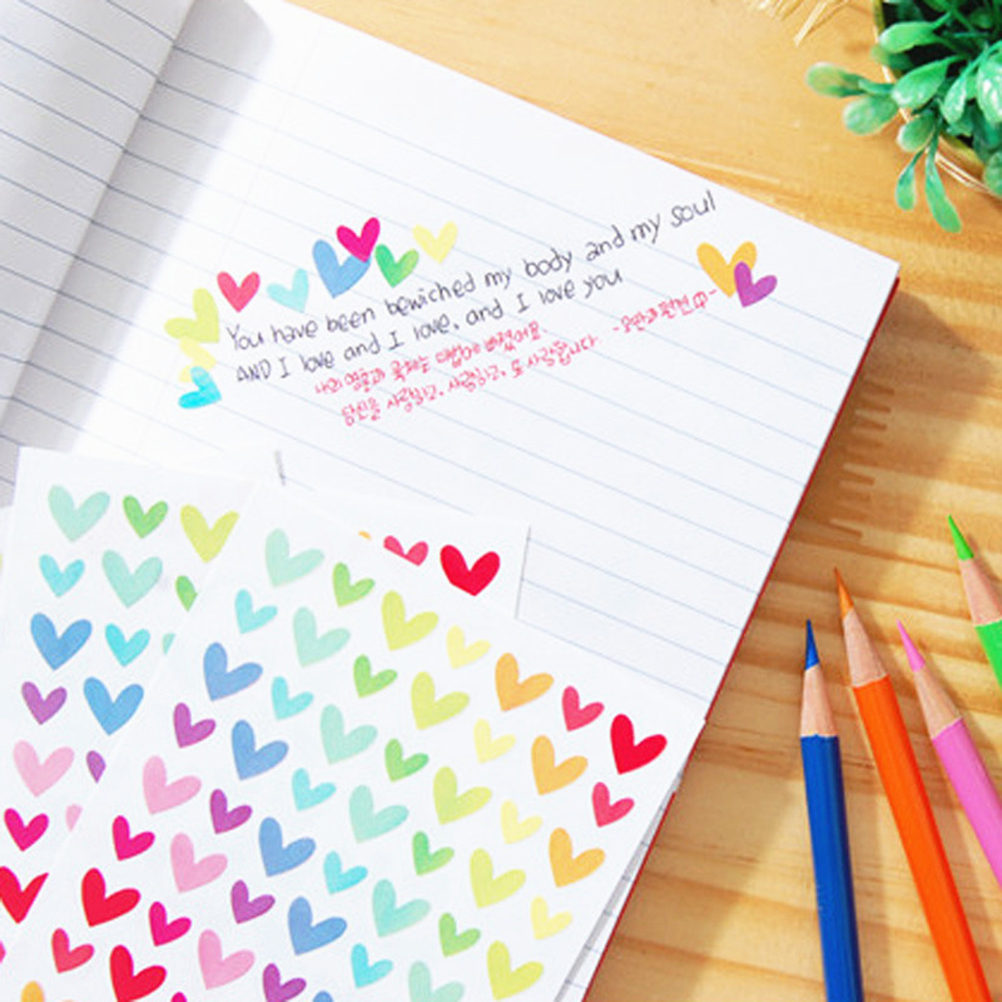 You have been bewiched my body and my soul
AND I love and I love, and I love you
나의 영혼과 육체는 마법에 빠졌어요.
당신을 사랑하고, 사랑하고, 또 사랑합니다 -오만과 편견 中-